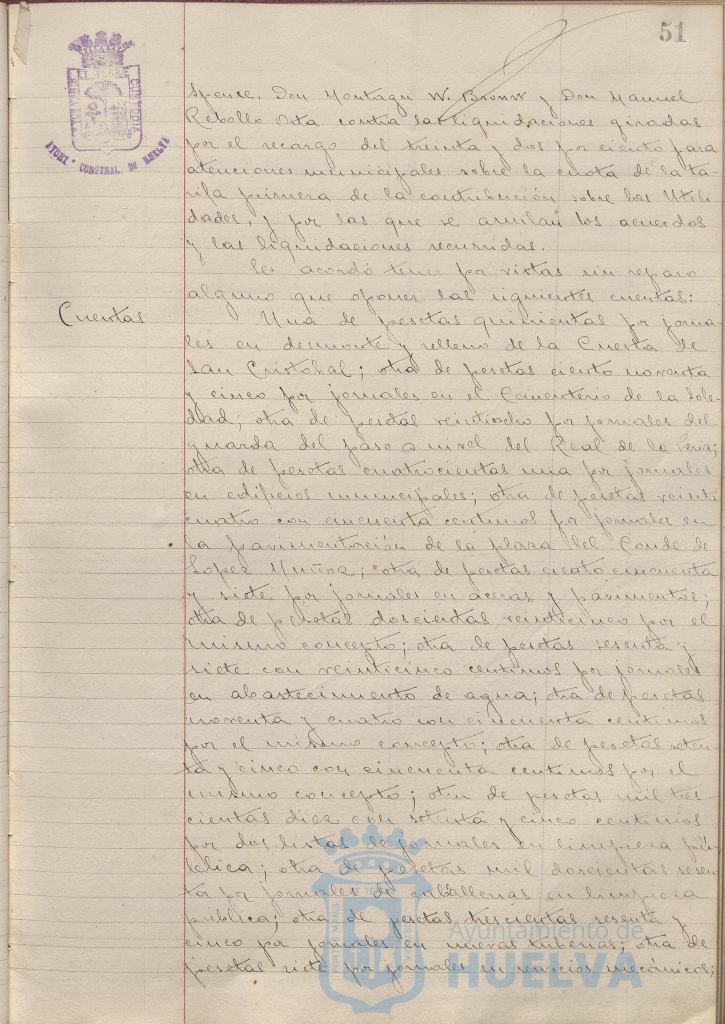 51
AYUNT. CONSTNAL. DE HUELVA
Spence, Don Montagu W. Brown y Don Manuel
Rebollo Orta contra las liquidaciones giradas
por el recargo del treinta y dos por ciento para
atenciones municipales sobre la cuota de la ta-
rifa primera de la contribución sobre las Utili
dades, y por las que se anulan los acuerdos
y las liquidaciones recurridas.
Se acordó tener por vistas sin reparo
alguno que oponer las siguientes cuentas:
Cuentas
Una de pesetas quinientas por jorna
les en desmonte y relleno de la Cuesta de
San Cristobal; otra de pesetas ciento noventa
y cinco por jornales en el Cementerio de la Sole-
dad; otra de pesetas veintiocho por jornales del
guarda del paso a nivel del Real de la Feria;
otra de pesetas cuatrocientas una por jornales
en edificios municipales; otra de pesetas veinti
cuatro con cincuenta centimos por jornales en
la pavimentación de la plaza del Conde de
Lopez Muñoz; otra de pesetas ciento cincuenta
y siete por jornales en aceras y pavimentos;
otra de pesetas doscientas veinticinco por el
mismo concepto; otra de pesetas sesenta y
siete con veinticinco centimos por jornales
en abastecimiento de agua; otra de pesetas
noventa y cuatro con cincuenta centimos
por el mismo concepto; otra de pesetas seten-
ta y cinco con cincuenta centimos por el
mismo concepto; otra de pesetas mil tres-
cientas diez con setenta y cinco centimos
por dos listas de jornales en limpieza pú-
blica; otra de pesetas mil doscientas sesen
ta por jornales de caballerias en limpieza
pública; otra de pesetas trescientas sesenta y
cinco por jornales en nuevas tuberias; otra de
pesetas siete por jornales en servicios mecánicos;
Ayuntamiento de
HUELVA